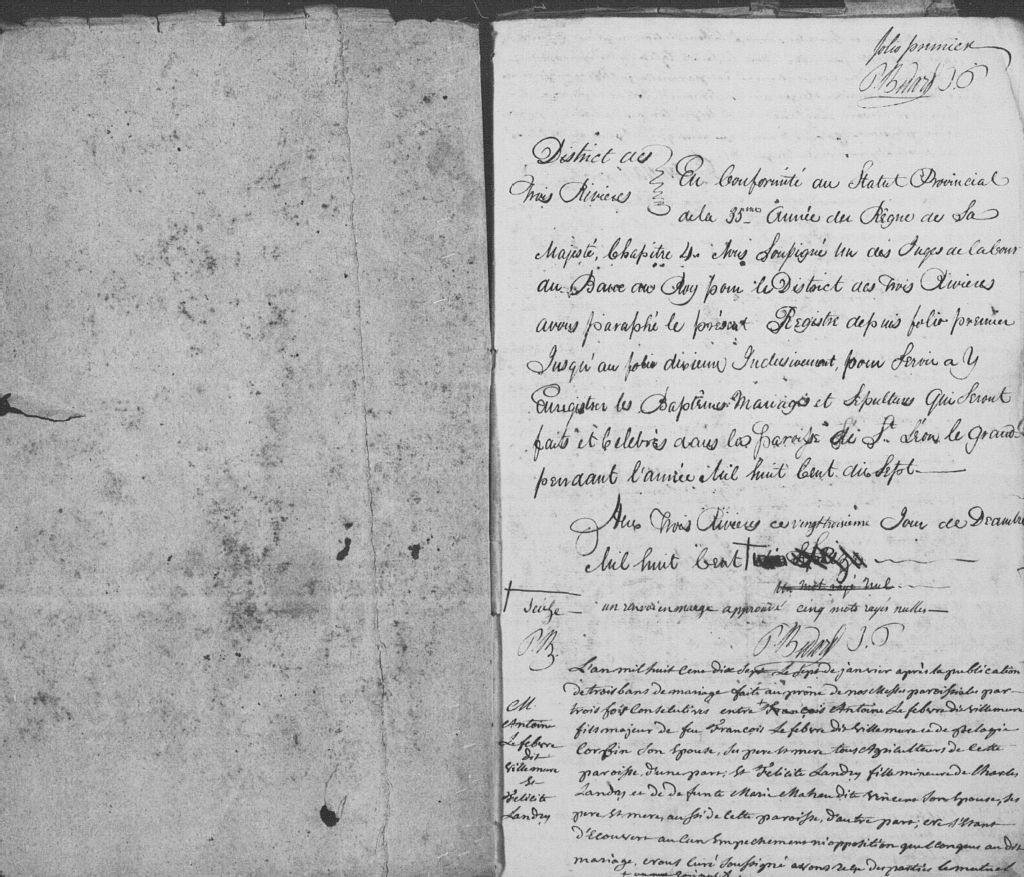 folio premier
P. Bedard J. P
District des
Trois Rivieres
En Conformité au Statut Provincial
de la 35me Année du Règne de Sa
Majesté, Chapitre 4. Nous Soussigné Un des Juges de la Cour
du Banc du Roy pour le District des Trois Rivieres
avons paraphé le présent Registre depuis folio premier
Jusqu'au folio dixieme Inclusivement, pour Servir a Y
Enregistrer les Baptêmes Mariages et Sépultures Qui Seront
faits et Celebrés dans la paroisse de St. Léon le Grand
pendant l'année Mil huit Cent dix Sept
Aux Trois Rivieres ce vingttroisieme Jour de Decembre
Mil huit Cent †
Un Mot rayé Nul
† Seize
un renvoi en marge approuvé cinq mots rayés nulles
P. B.
P. Bedard J. P
L'an mil huit Cent dix Sept, Le Sept de janvier après la publication
de trois bans de mariage faite au prône de nos Messes paroissiales par
trois fois Consécutives entre François Antoine Lefebvre dit Villemure
fils majeur de feu François Lefebvre dit Villemure et de pelagie
Son Epouse, Ses pere et mere tous Agriculteurs de Cette
paroisse, d'une part; Et Félicité Landry fille mineure de Charles
Landry et de defunte Marie dite Vincent Son Epouse, Ses
pere Et mere, aussi de Cette paroisse, d'autre part; et ne s'étant
découvert aucun Empechement ni opposition quelconque au dit
mariage, nous Curé Soussigné avons reçu des parties le mutuel
M
Antoine
Lefebvre
dit
Villemure
Et
Félicité
Landry